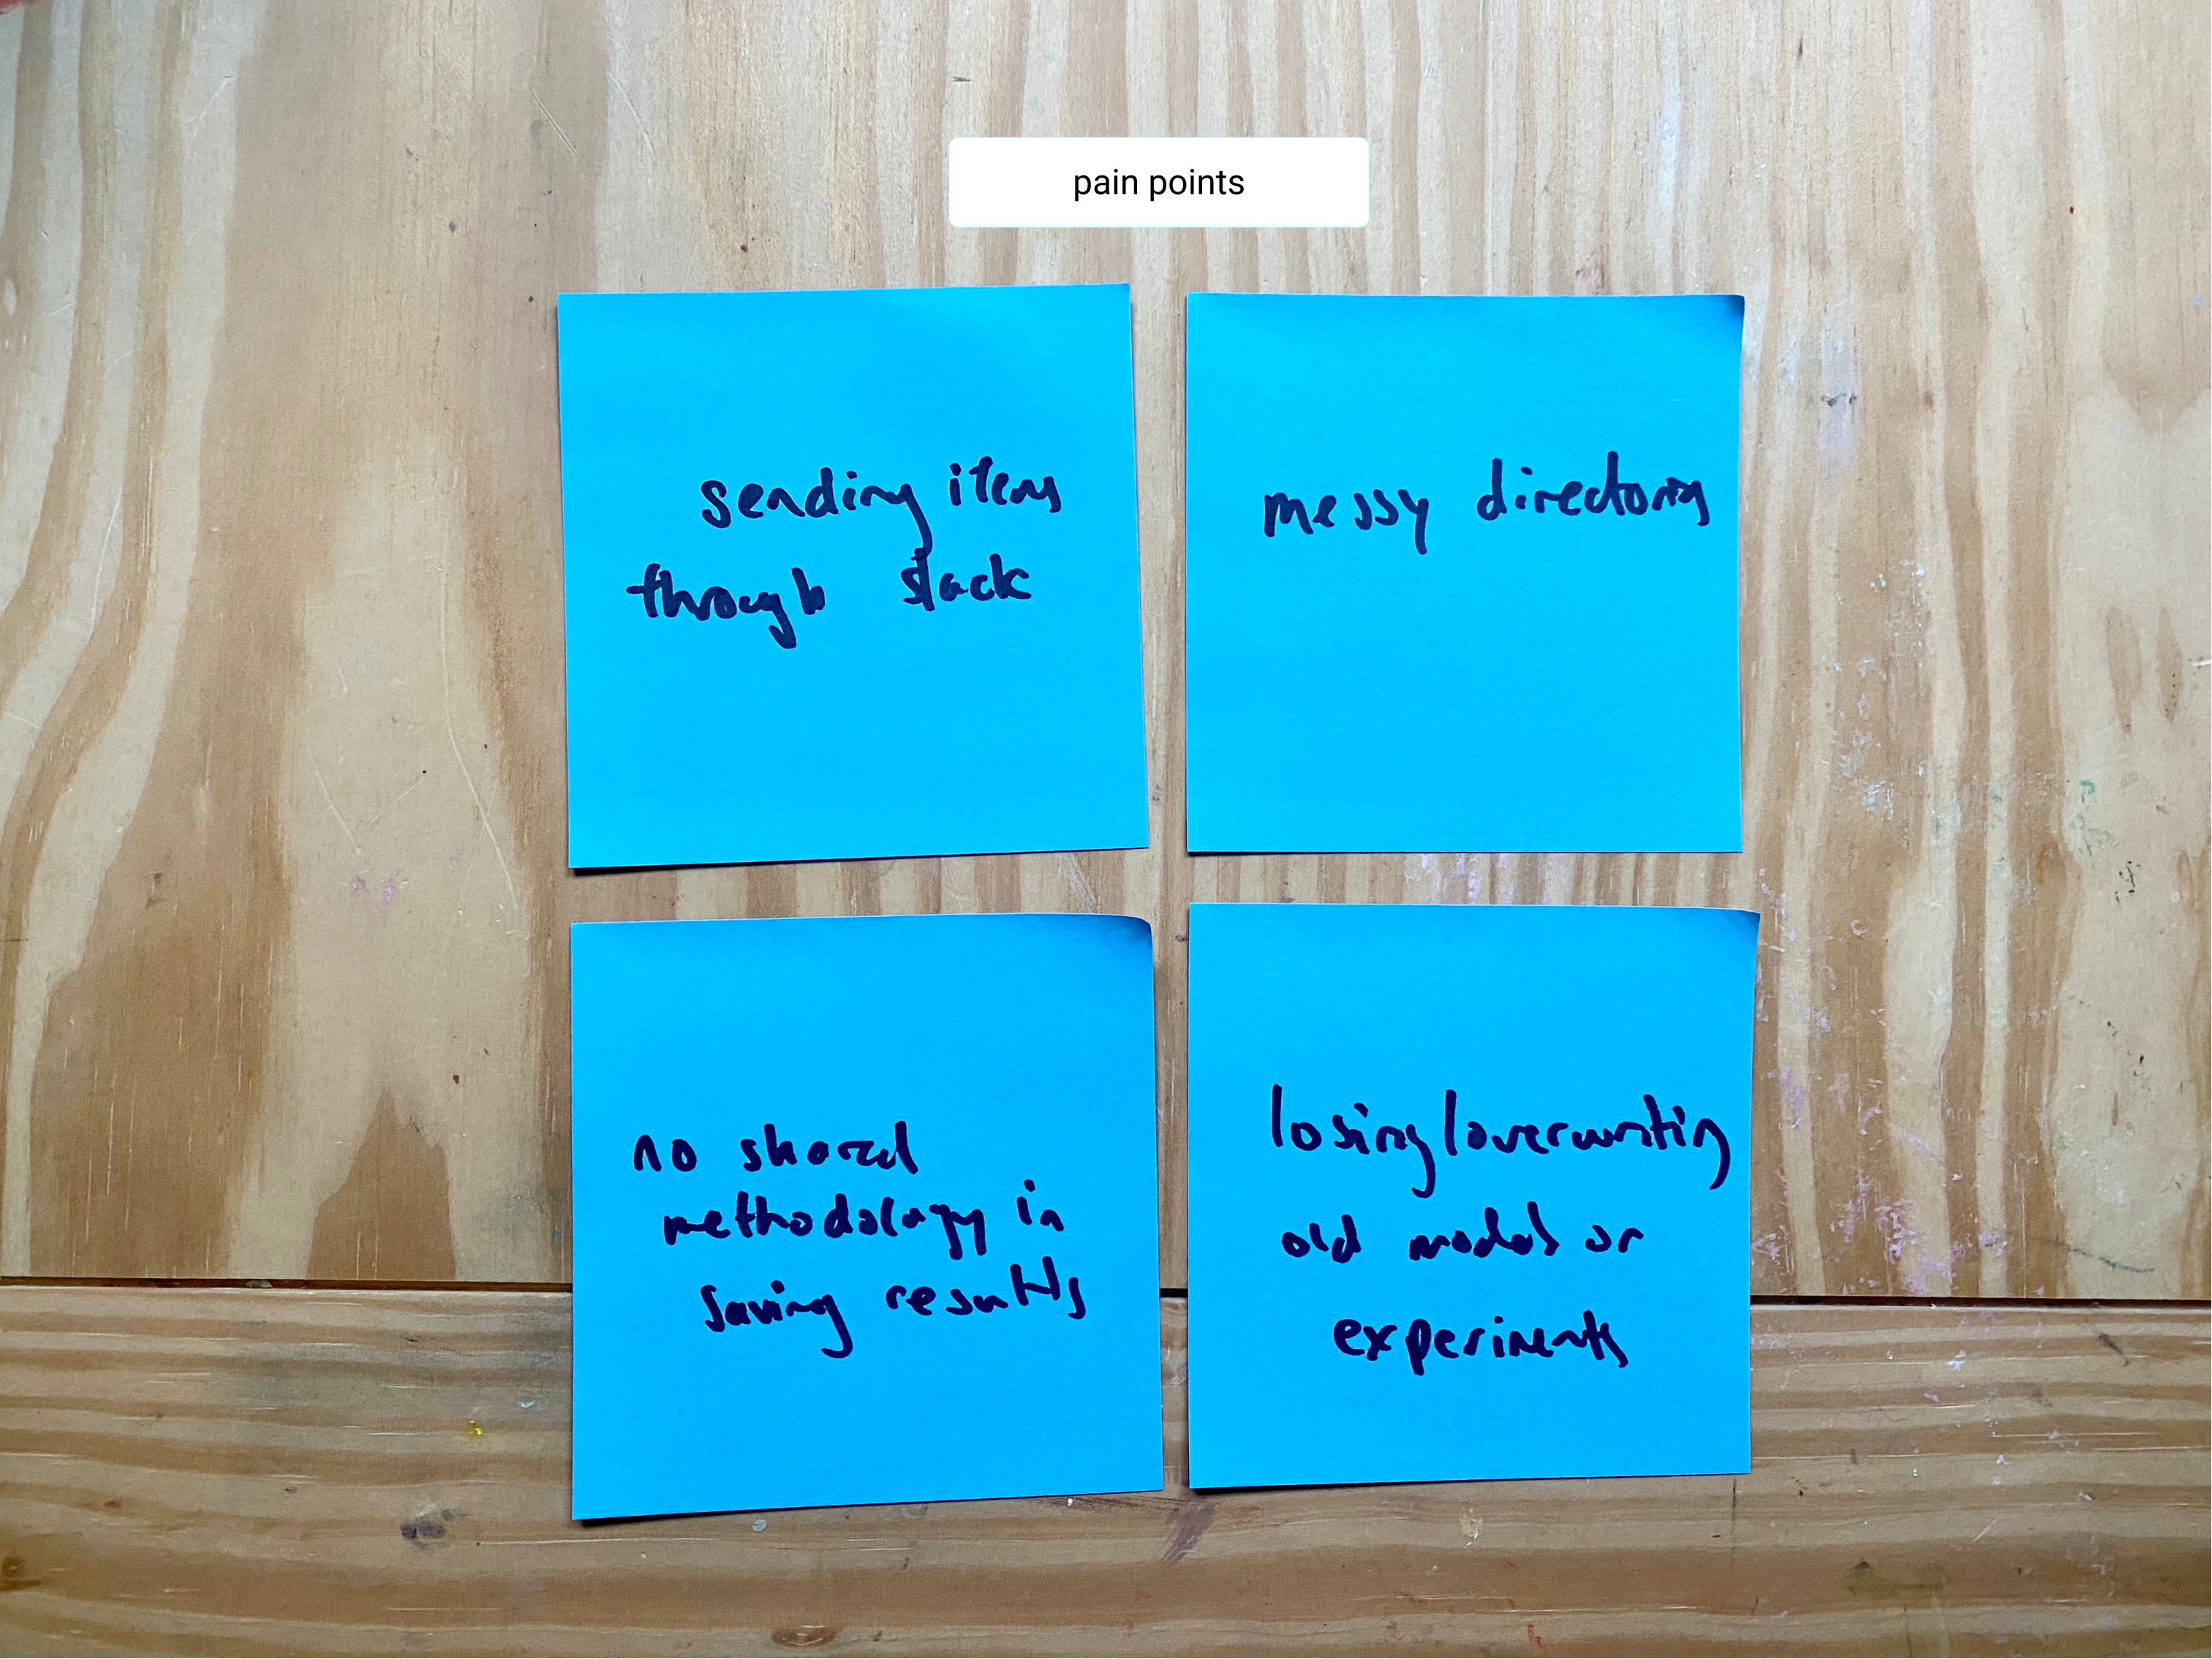 pain points
sending items
through slack
messy directories
no shared
methodology in
saving results
losing/overwriting
old models or
experiments